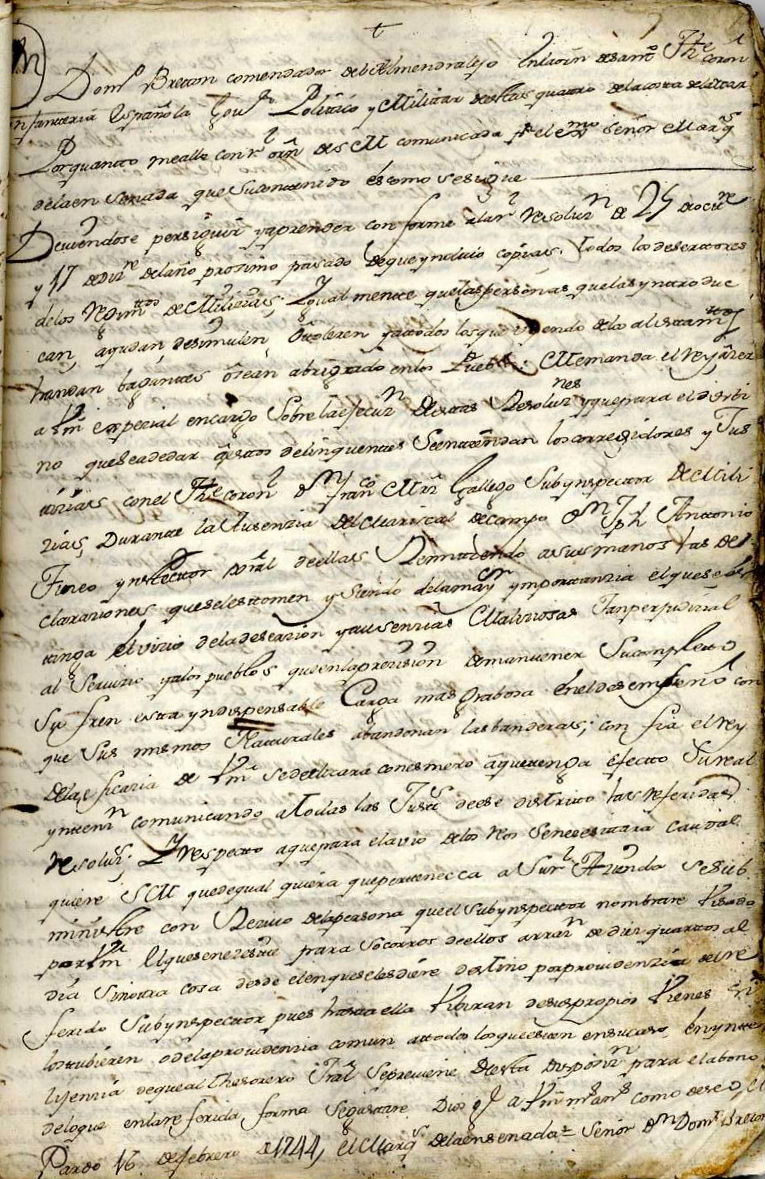 Domº Bretton comendador del Almendralejo En laorn desantº The coron
ynfantteria Española Govr Politico y Militar destas quattro delacosta dela Mar
Porquanto mealle con rl orn de S M comunicada pr el exmo Señor Marqs
delaen Senada que Sucontenido es como sesigue
Deviendose perseguir yaprender conforme alas rs resoluzn de 25 deoctre
y 17 de Dizre delaño proximo pasado dequeynduio copias. todos los desertores
delos Regimtos de Milizias, Ygual mente quelaspersonas quelas yntrodu
can, ayudan, desimulen, Otoleren yatodos losque uyendo delos alistamtos
handan bagantes osean abrigado enlos Pueblos. Memanda el rey
a Vm especial encargo Sobre laejecuzn destas Resoluznes yquepara el desti
no queseadedar aestos delinquentes Seentiendan loscorrexidores y Jus
tizias conel The coronl Dn Franco Mrn Gallego Subynspector de Mili
zias, Durante la Ausenzia del Mariscal decampo Dn Jph Anttonio
Tineo ynspector Gral deellas Remitiendo asusmanos las de
claraziones queselestomen y siendo delamayr ymportanzia elquese
tinga el vizio deladeserzion yausenzias Maliziosas Tanperjudizial
al Servizio yalos pueblos queenlaprezision demantener Sucompleto
Sufren esta yndispensable Carga mas Grabosa Eneldesempeño con
que Sus mismos Naturales abandonan lasbanderas; con fia el rey
dela eficazia de Vm sededicara conesmero aquetenga efecto Sureal
yntenzn comunicando atodas las Justs deese distrito las referidas
resoluzs; Y respecto aquepara elavio delos reos Seneesitara caudal
quiere S M quedequal quiera quepertenezca a Surl Azienda sesub
ministre con Recivo delapersona queel Subynspector nombrare Visado
por Vm Elquesenezesite para Socorros deellos arrazn de diez quartos al
dia sinotra cosa desde elenqueselesdiere destino porprovidenzia del re
ferido Subynspector pues hastaella Viviran desuspropios Vienes si
lostubieren, odelaprovidenzia comun atodos losqueesten ensucaso, Enynte
lijenzia dequeal Thesorero Gral Sepreviene deesta disposizn para elabono
deloque enlareferida forma Segastare Dios ge a Vm ms as como deseo, El
Pardo 16 de febrero de 1744, el Marqs delaensenada = Señor Dn Domº Bretton